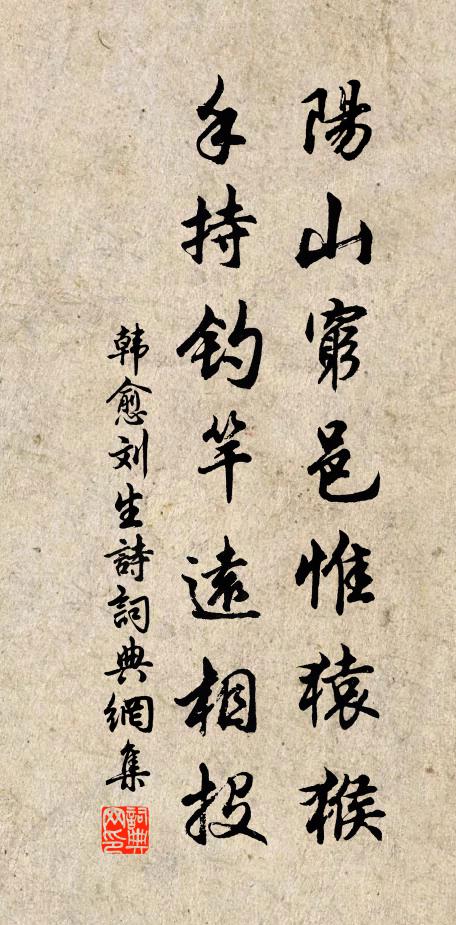 陽山窮邑惟猿猴
手持釣竿遠相投
韩愈刘生詩詞典網集
詞典网印